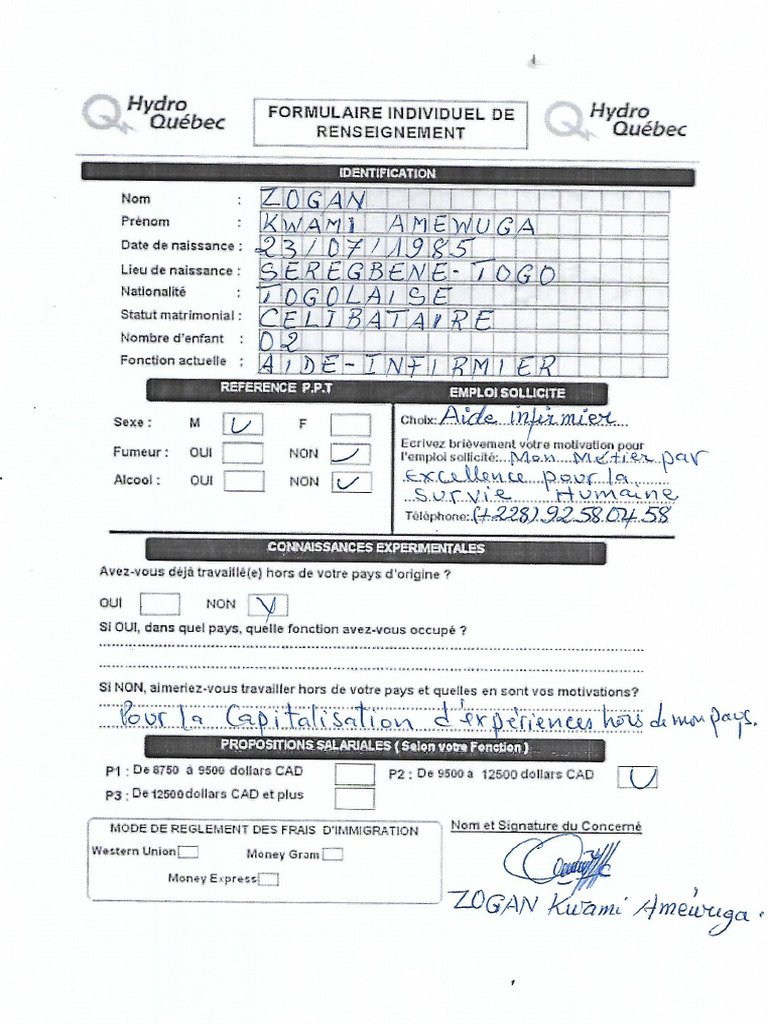 Hydro
Québec
FORMULAIRE INDIVIDUEL DE
RENSEIGNEMENT
Hydro
Québec
IDENTIFICATION
Nom : ZOGAN
Prénom : KWAMI AMEWUGA
Date de naissance : 23/07/1985
Lieu de naissance : SEREGBENE-TOGO
Nationalité : TOGOLAISE
Statut matrimonial : CELIBATAIRE
Nombre d'enfant : 02
Fonction actuelle : AIDE-INFIRMIER
REFERENCE P.P.T
Sexe : M F
Fumeur : OUI NON
Alcool : OUI NON
EMPLOI SOLLICITE
Choix: Aide infirmier
Ecrivez brièvement votre motivation pour
l'emploi sollicité: Mon Métier par
excellence pour la
survie Humaine
Téléphone: (+228) 92 58 04 58
CONNAISSANCES EXPERIMENTALES
Avez-vous déjà travaillé(e) hors de votre pays d'origine ?
OUI NON
Si OUI, dans quel pays, quelle fonction avez-vous occupé ?
Si NON, aimeriez-vous travailler hors de votre pays et quelles en sont vos motivations?
Pour la Capitalisation d'expériences hors de mon pays.
PROPOSITIONS SALARIALES ( Selon votre Fonction )
P1 : De 8750 à 9500 dollars CAD P2 : De 9500 a 12500 dollars CAD
P3 : De 12500 dollars CAD et plus
MODE DE REGLEMENT DES FRAIS D'IMMIGRATION
Western Union Money Gram
Money Express
Nom et Signature du Concerné
ZOGAN Kwami Amewuga.